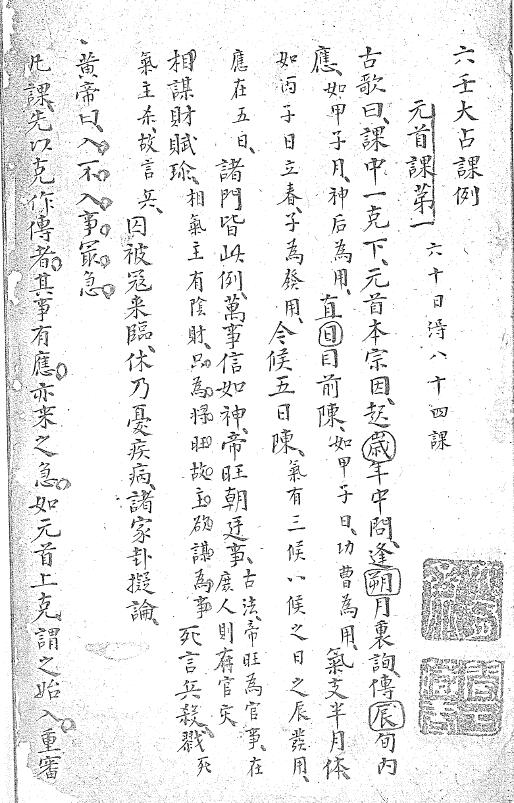 六壬大占課例
元首課第一 六十日得八十四課
古歌曰、課中一克下、元首本宗因、起歲年中問、逢朔月裏詢、傳辰旬內
應、如甲子月、神后為用、直日目前陳、如甲子日、功曹為用、氣支半月体、
如丙子日立春、子為發用、今候五日陳、氣有三候、八候之日之辰發用、
應在五日、諸門皆此例、萬事信如神、帝旺朝廷事、古法、帝旺為官事、在庶人則有官灾、
相謀財賦瑜、相氣主有陰財、只為将旺、故主欲謀為事 死言兵殺戮、死
氣主杀、故言兵、囚被冤来臨、休乃憂疾病、諸家卦擬論、
黄帝曰、入不入事冣急、
凡課、先以克作傳者、其事有應、亦来之急、如元首上克、謂之始入、重審